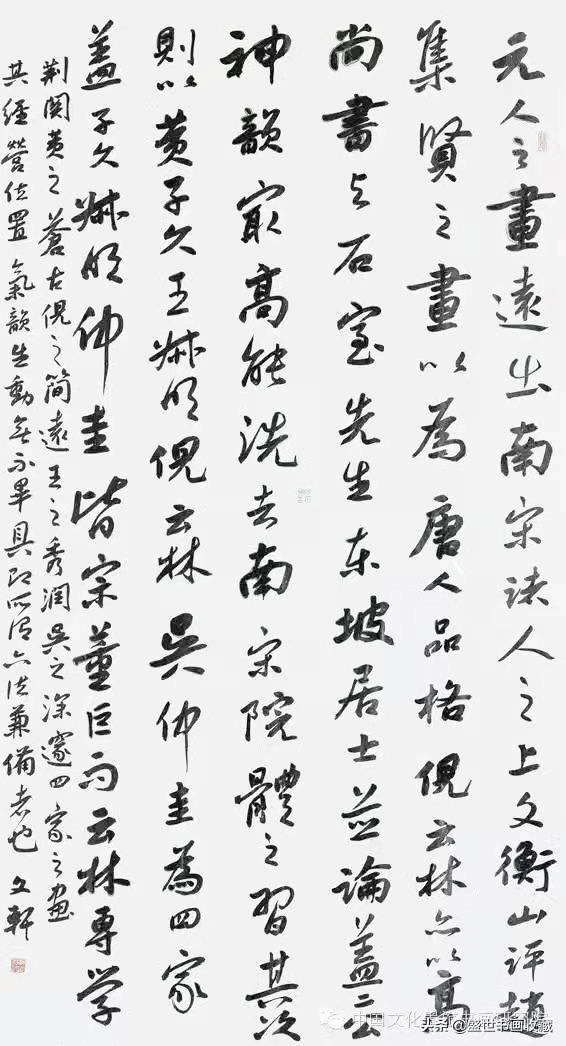 元人之畫遠出南宋诸人之上文衡山评趙
集賢之畫以為唐人品格倪云林亦以高
尚書与石室先生东坡居士並論蓋二公
神韻最高能洗去南宋院體之習其次
則以黄子久王叔明倪云林吴仲圭為四家
蓋子久叔明仲圭皆宗董巨而云林專学
荆関黄之蒼古倪之简遠王之秀潤吴之深邃四家之画
其經營位置氣韻生動無不畢具即所谓六法兼備者也 文軒
头条 @盛世书画收藏